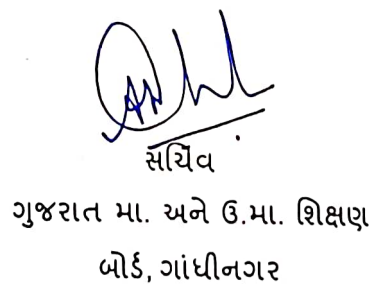 સચિવ
ગુજરાત મા. અને ઉ.મા. શિક્ષણ
બોર્ડ, ગાંધીનગર